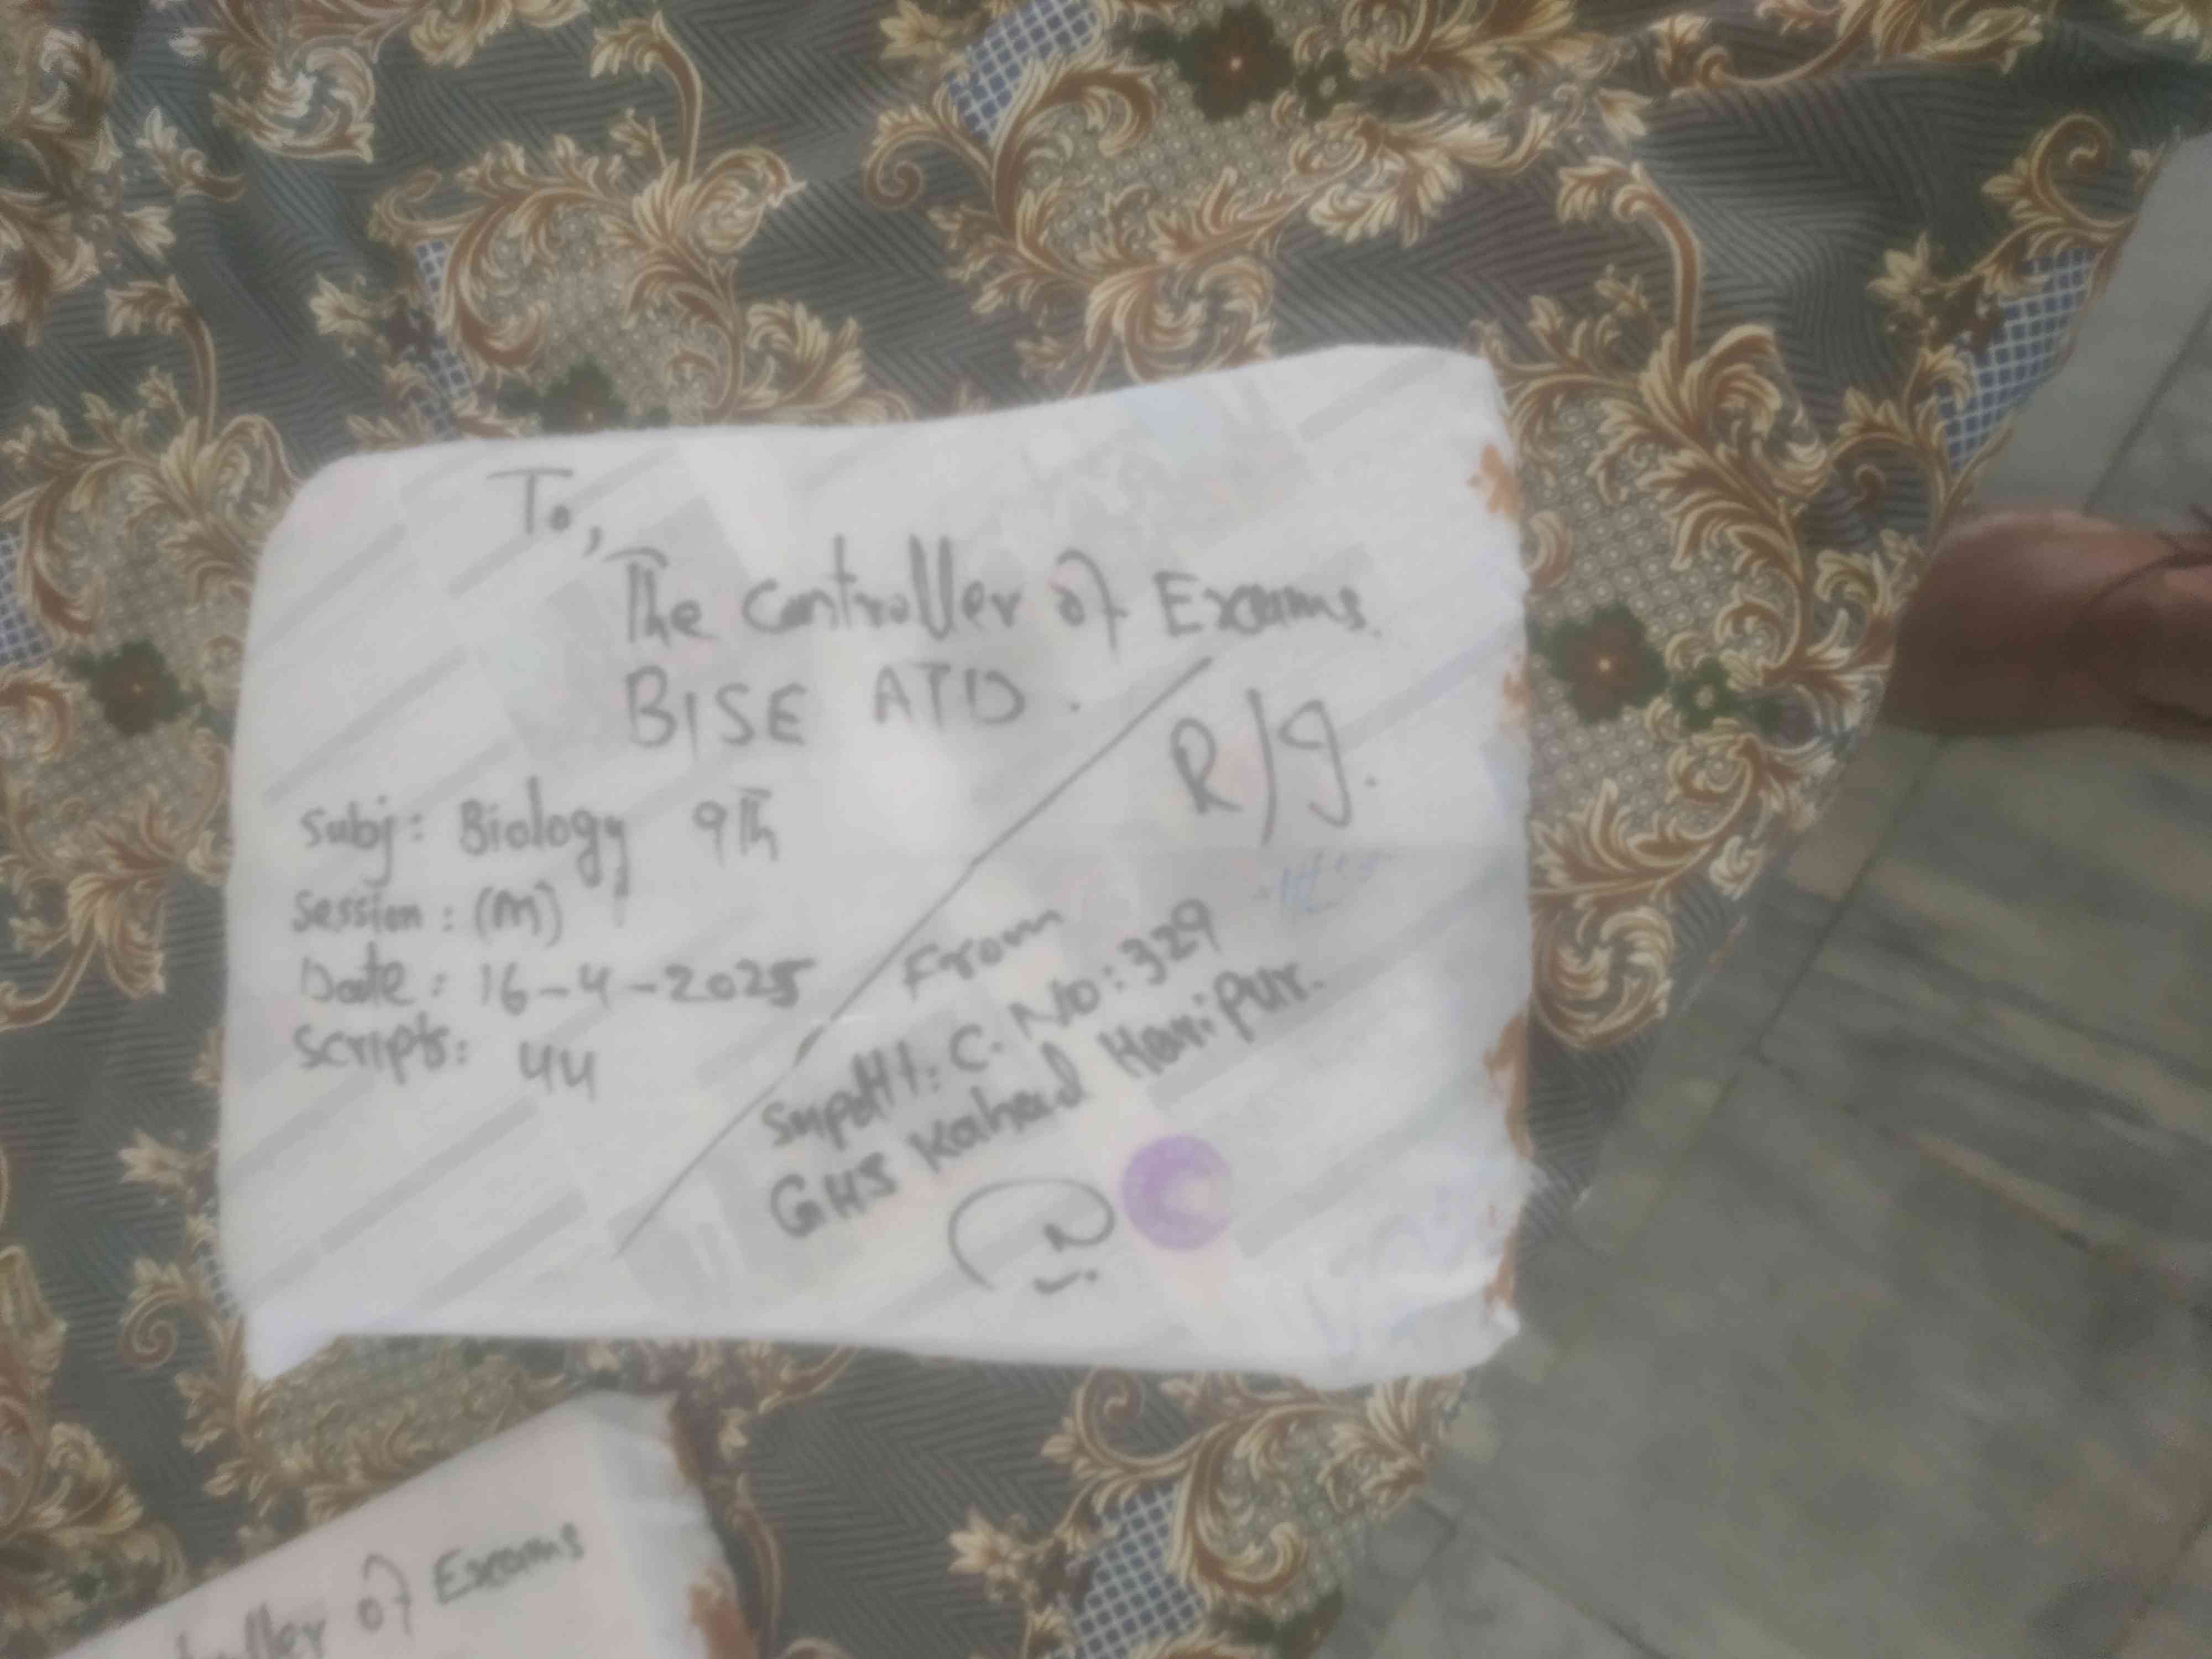 To,
The Controller of Exams.
BISE ATD.
R/g.
Subj: Biology 9th
Session: (M)
Date: 16-4-2025
Scripts: 44
From
Supdtt: C. No: 329
GHS Kahad Haripur.
of Exams